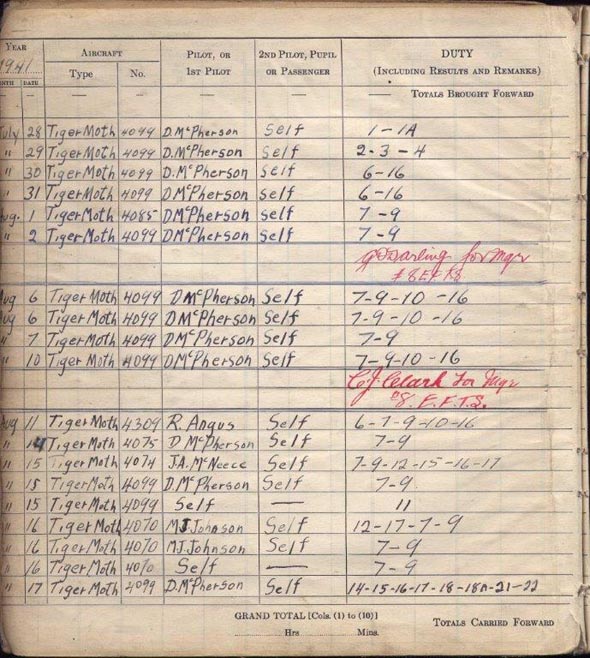 YEAR AIRCRAFT PILOT, OR 2ND PILOT, PUPIL DUTY
1941 Type No. 1ST PILOT OR PASSENGER (INCLUDING RESULTS AND REMARKS)
NTH DATE
— — — — — — — TOTALS BROUGHT FORWARD
July 28 Tiger Moth 4099 D. McPherson Self 1-1A
" 29 Tiger Moth 4099 D. McPherson Self 2-3-4
" 30 Tiger Moth 4099 D. McPherson Self 6-16
31 Tiger Moth 4099 D McPherson Self 6-16
Aug. 1 Tiger Moth 4085 D McPherson Self 7-9
" 2 Tiger Moth 4099 D McPherson Self 7-9
Darling for Mgr
#8 E.F.T.S.
Aug 6 Tiger Moth 4099 D McPherson Self 7-9-10-16
Aug 6 Tiger Moth 4099 D McPherson Self 7-9-10-16
" 7 Tiger Moth 4099 D McPherson Self 7-9
" 10 Tiger Moth 4099 D McPherson Self 7-9-10-16
C.J. Clark for Mgr
#8. E.F.T.S.
Aug 11 Tiger Moth 4309 R. Angus Self 6-7-9-10-16
" 14 Tiger Moth 4075 D McPherson Self 7-9
" 15 Tiger Moth 4074 J.A. McNeece Self 7-9-12-15-16-17
" 15 Tiger Moth 4099 D McPherson Self 7-9
" 15 Tiger Moth 4099 Self — 11
" 16 Tiger Moth 4070 M.J. Johnson Self 12-17-7-9
" 16 Tiger Moth 4070 M.J. Johnson Self 7-9
" 16 Tiger Moth 4070 Self — 7-9
" 17 Tiger Moth 4099 D. McPherson Self 14-15-16-17-18-18A-21-22
GRAND TOTAL [Cols. (1) to (10)] TOTALS CARRIED FORWARD
Hrs Mins.